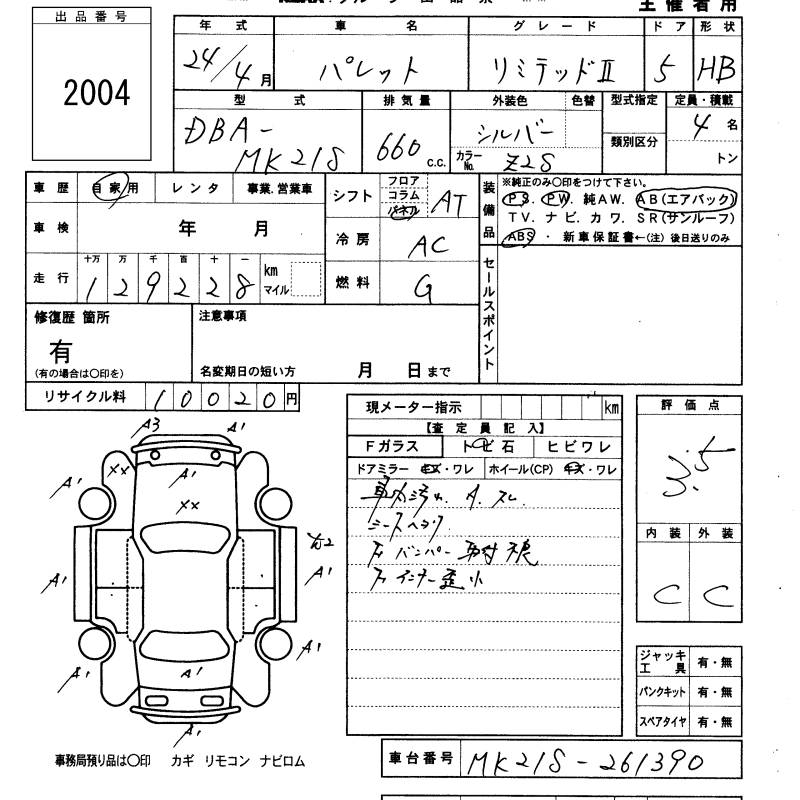 主催者用
出品番号
2004
年式 車名 グレード ドア 形状
24/4月 パレット リミテッドⅡ 5 HB
型式 排気量 外装色 色替 型式指定 定員・積載
DBA-MK21S 660 c.c. シルバー 類別区分 4名
カラーNo. Z2S トン
車歴 自家用 レンタ 事業.営業車
車検 年 月
走行 十万 万 千 百 十 一
1 2 9 2 2 8 km マイル
シフト フロア コラム パネル AT
冷房 AC
燃料 G
装備品
※純正のみ〇印をつけて下さい。
PS. PW. 純AW. AB(エアバック)
TV. ナビ. カワ. SR(サンルーフ)
ABS ・ 新車保証書←(注) 後日送りのみ
セールスポイント
修復歴 箇所
有
(有の場合は〇印を)
注意事項
名変期日の短い方 月 日まで
リサイクル料 10020円
現メーター指示 km
【査定員記入】
Fガラス トビ石 ヒビワレ
ドアミラー キズ・ワレ ホイール(CP) キズ・ワレ
車内汚れ. A. スレ
シートヘタリ
Fバンパー 取付不良
Fインナー歪小
評価点
3.5
内装 外装
C C
A3 A1
XX A1
A1 XX
A1 A1
A1
A1
A1 A1
ジャッキ工具 有・無
パンクキット 有・無
スペアタイヤ 有・無
事務局預り品は〇印 カギ リモコン ナビロム
車台番号 MK21S-261390